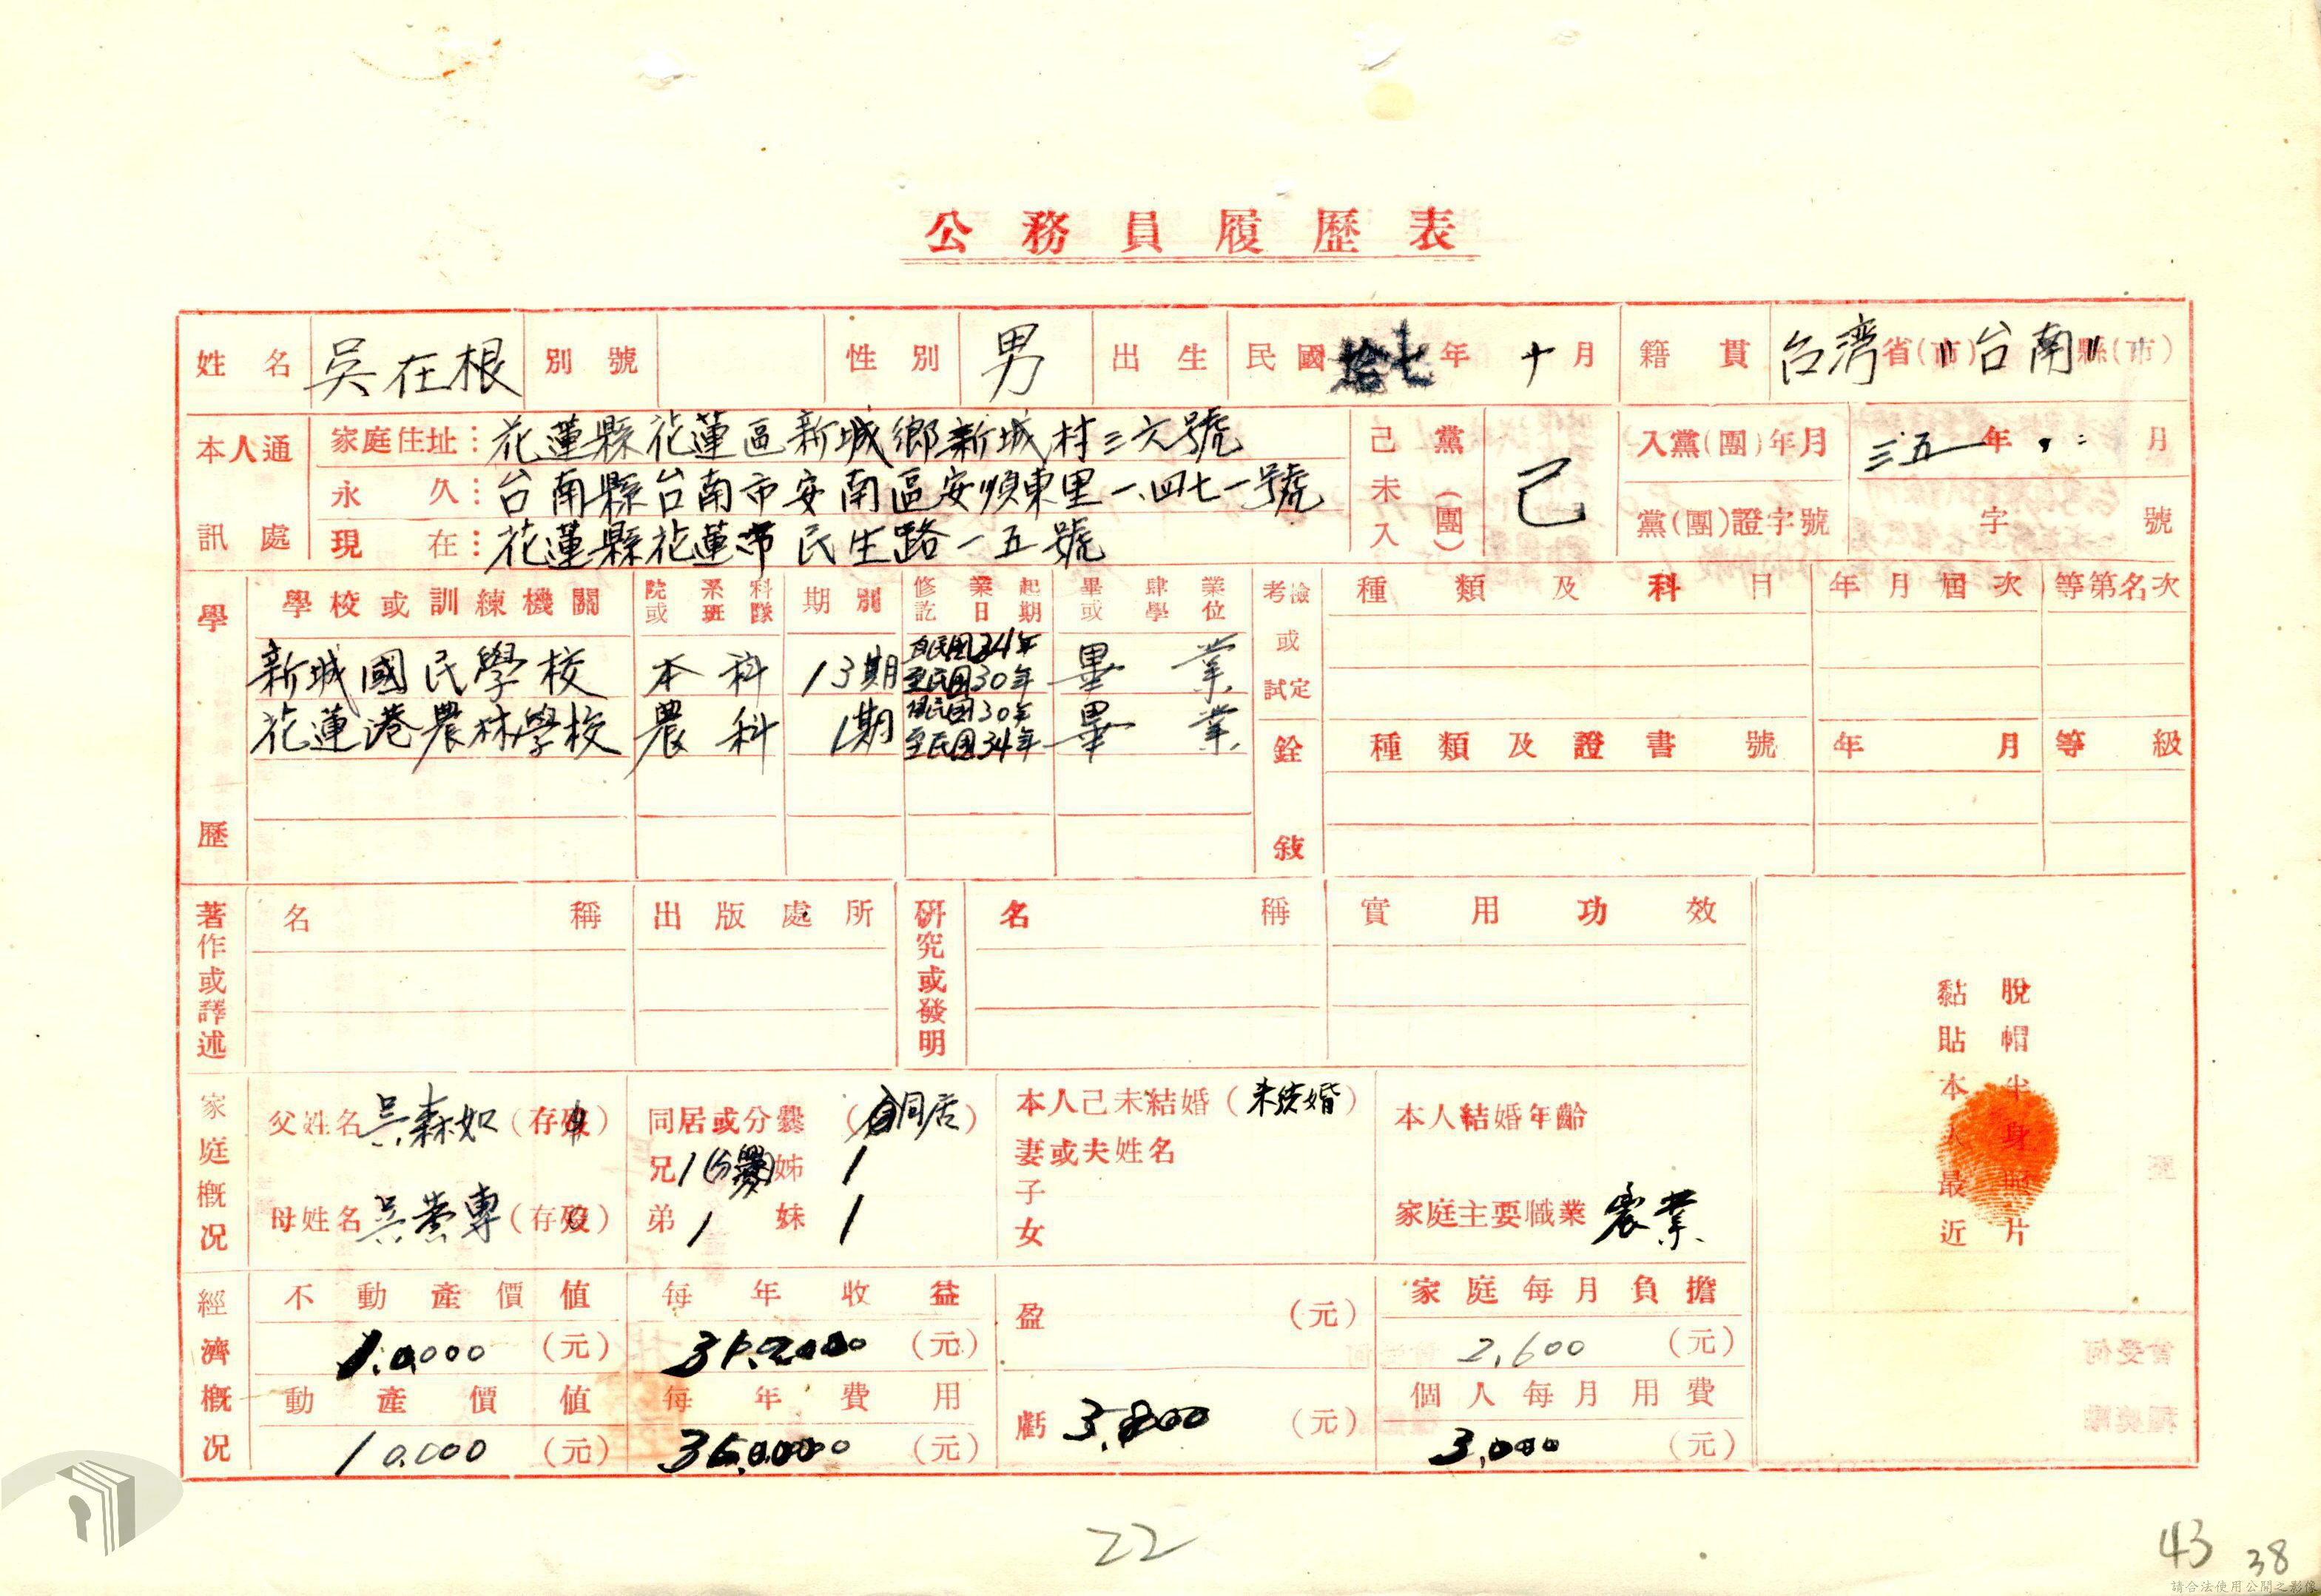 公務員履歷表
姓名 吳在根 別號 性別 男 出生 民國拾七年十月 籍貫 台湾省(市)台南縣(市)
本人通訊處
家庭住址：花蓮縣花蓮區新城鄉新城村三六號
永久：台南縣台南市安南區安順東里一四七一號
現在：花蓮縣花蓮市民生路一五號
己未入黨(團) 己
入黨(團)年月 三五年 月
黨(團)證字號 字 號
學歷
學校或訓練機關 院或系班科隊 期別 修業起訖日期 畢肄業或學位
新城國民學校 本科 13期 畢業
至民國30年
花蓮港農林學校 農科 1期 民國30年 畢業
至民國34年
考試或檢定 種類及科目 年月屆次 等第名次
銓敍 種類及證書號 年月 等級
著作或譯述 名稱 出版處所
研究或發明 名稱 實用功效
脫帽半身照片
黏貼本人最近
家庭概況
父姓名 吳森如 (存歿)
母姓名 吳 專 (存歿)
同居或分爨 (同居)
兄1(分爨) 姊1
弟1 妹1
本人己未結婚(未结婚)
妻或夫姓名
子
女
本人結婚年齡
家庭主要職業 农業
經濟概況
不動產價值 (元)
每年收益 (元)
動產價值 10.000 (元)
每年費用 (元)
盈 (元)
虧 3,800 (元)
家庭每月負擔
2,600 (元)
個人每月用費
3,000 (元)
22
43
38
請合法使用公開之影像